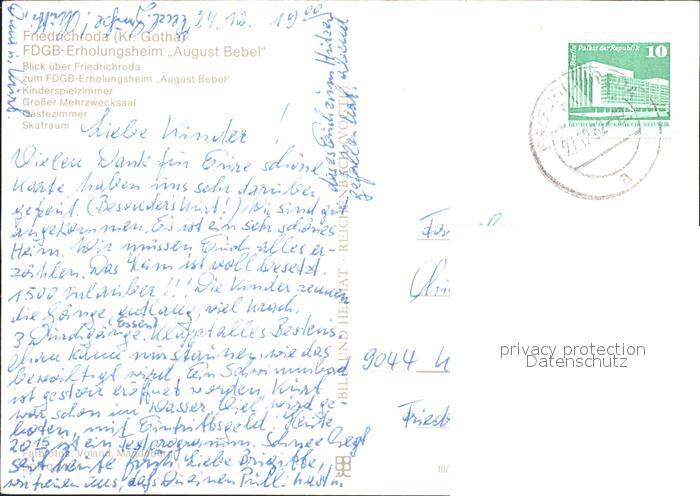 24. 12. 19⁰⁰
Friedrichroda (Kr. Gotha)
FDGB-Erholungsheim „August Bebel"
Blick über Friedrichroda
zum FDGB-Erholungsheim „August Bebel"
Kinderspielzimmer
Großer Mehrzwecksaal
Gästezimmer
Skatraum
Liebe Kinder !
Vielen Dank für Eure schöne
Karte haben uns sehr darüber
gefreut. (Besonders Kurt!) Wir sind gut
angekommen. Es ist ein sehr schönes
Heim. Wir müssen Euch alles er-
zählen. Das Heim ist voll besetzt.
1500 Urlauber!!! Die Kinder rennen
die Gänge entlang, viel Krach.
3 Durchgänge. (Essen) Klappt alles Bestens
man kann nur staunen, wie das
bewältigt wird. Ein Schwimmbad
ist gestern eröffnet worden. Kurt
war schon im Wasser. Viel wird ge-
boten, mit Eintrittsgeld. Heute
20¹⁵ ist ein Festprogramm. Schnee liegt
seit heute früh. Liebe Brigitte,
wir freuen uns, daß Du einen Pulli hast u.
Farbfotos: Voland, Magdeburg
BILD UND HEIMAT · REICHENBACH (VOGTL)
III/
Berlin Palast der Republik
10
DEUTSCHE DEMOKRATISCHE REPUBLIK
a
9044
privacy protection
Datenschutz